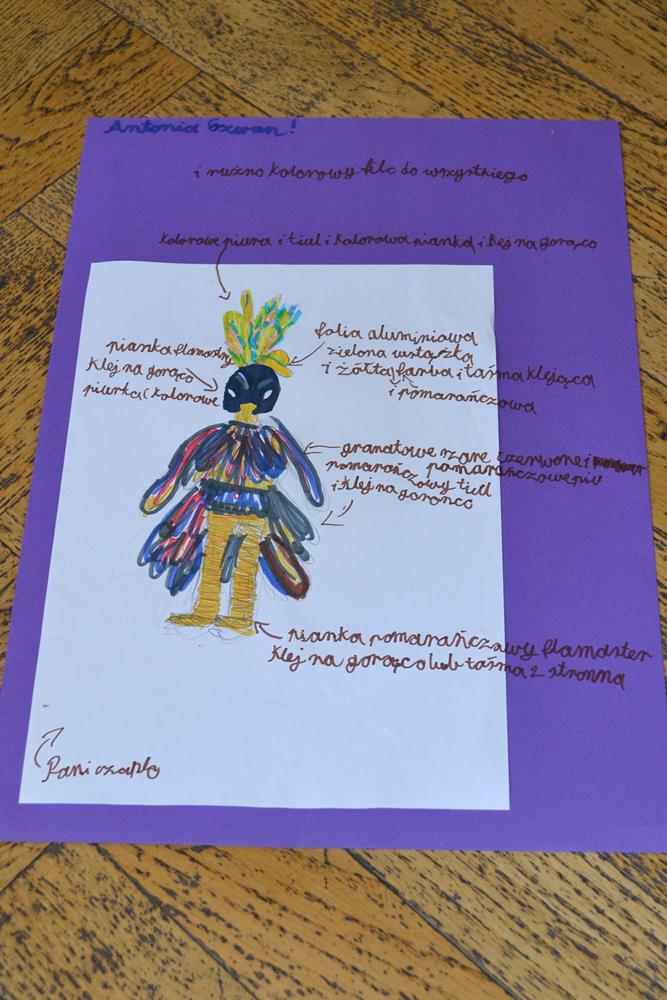 Antonia
i rużno kolorowy filc do wszystkiego
kolorowe piura i tiul i kolorowa pianka i klej na gorąco
folia aluminiowa
zielona wstążka
i żółta farba i taśma klejąca
i pomarańczowa
pianka flamastry
klej na gorąco
piurka kolorowe
granatowe czerwone i
pomarańczowe piu
pomarańczowy tiul
i klej na goronco
pianka pomarańczowy flamaster
klej na gorąco lub taśma 2 stronna
Pani czapla